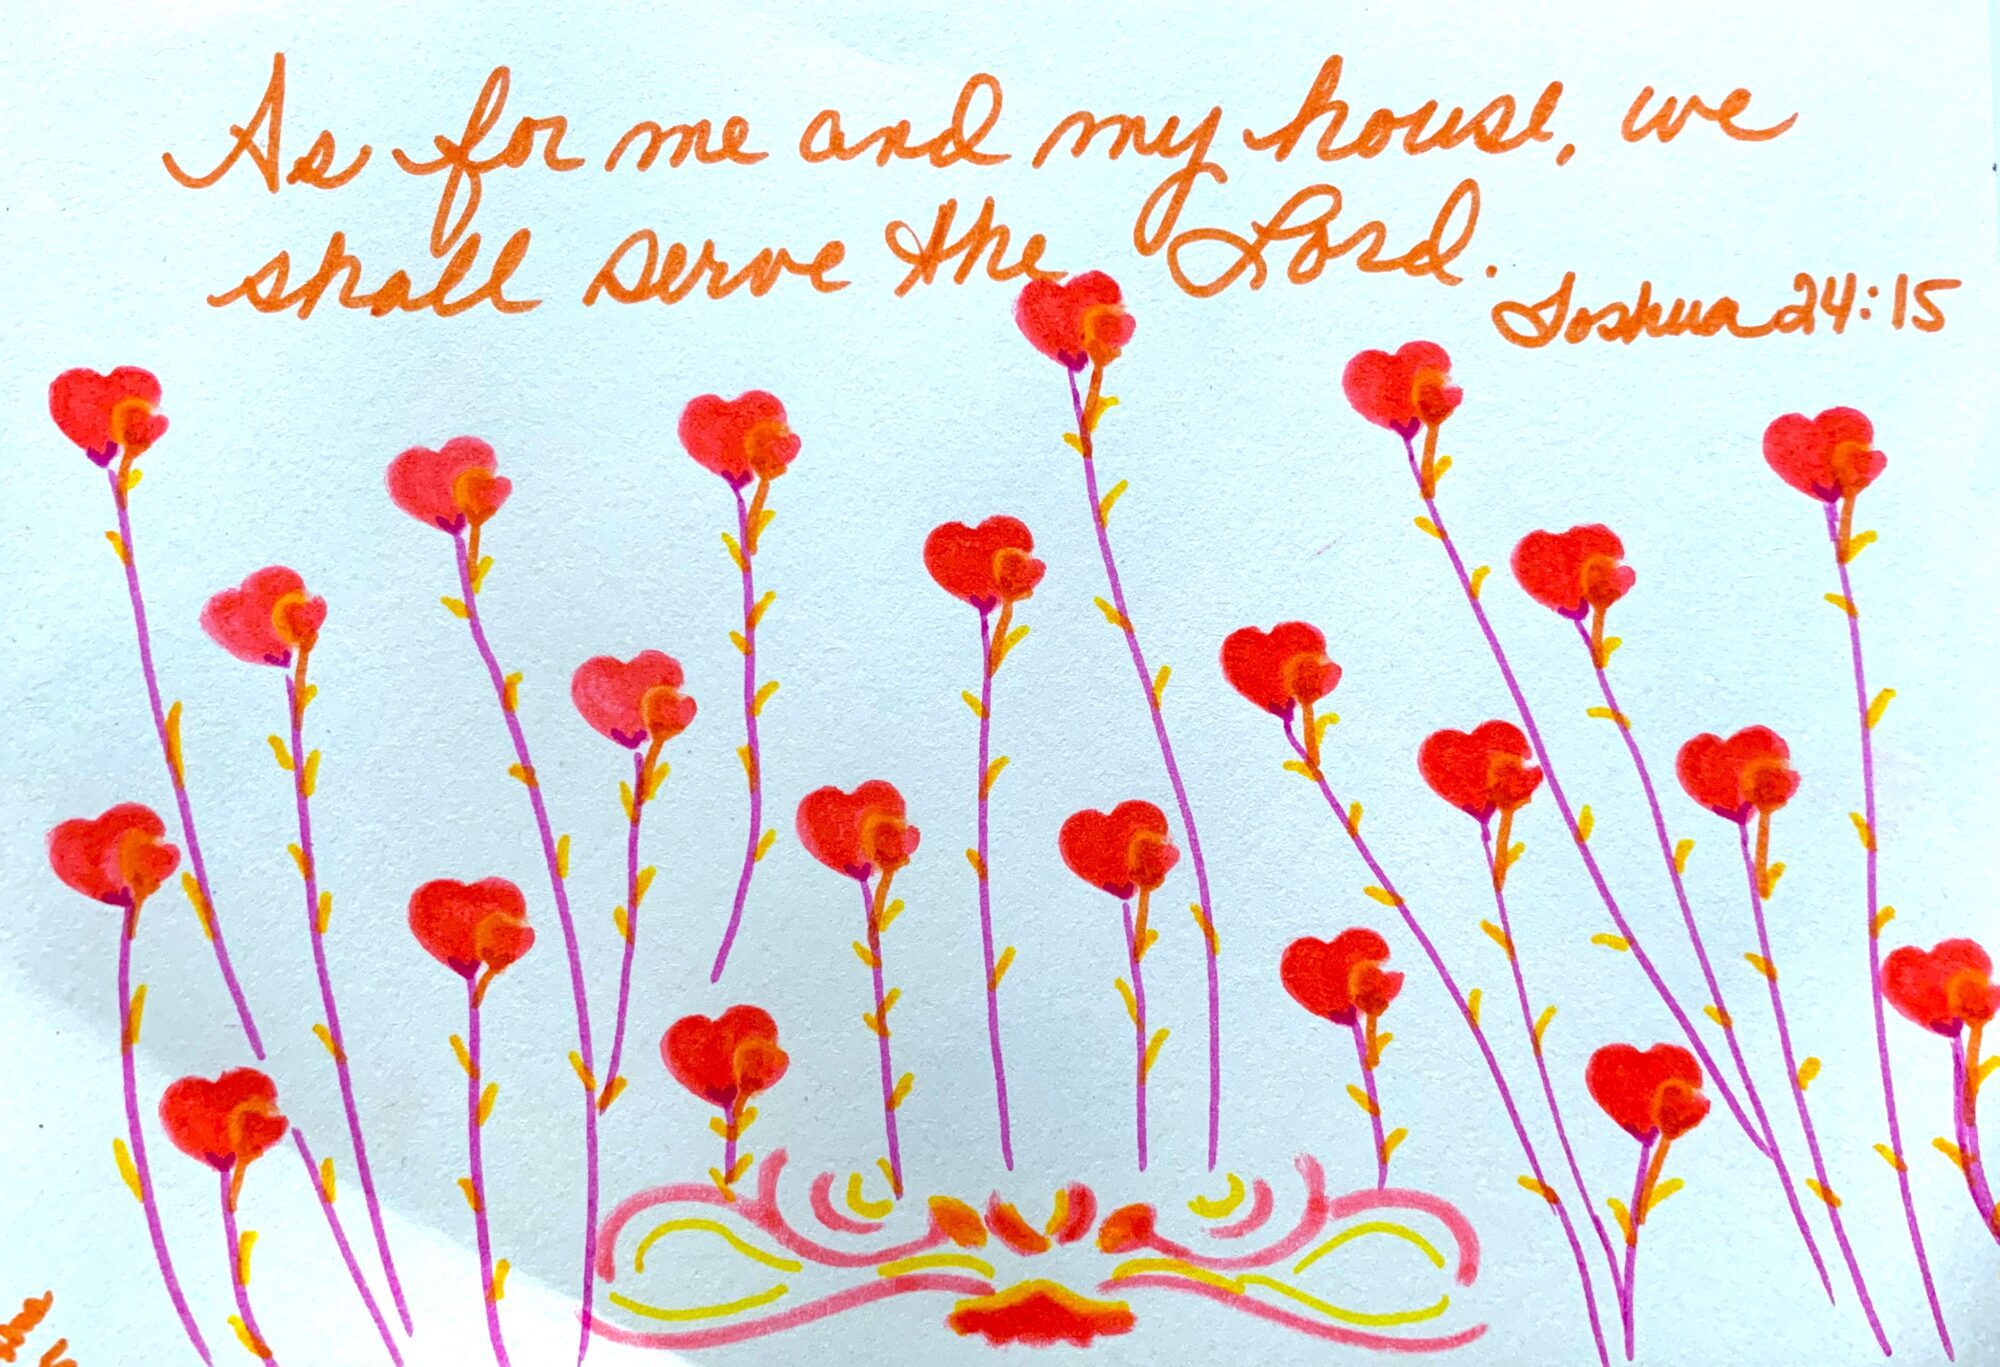 As for me and my house, we
shall serve the Lord.
Joshua 24:15